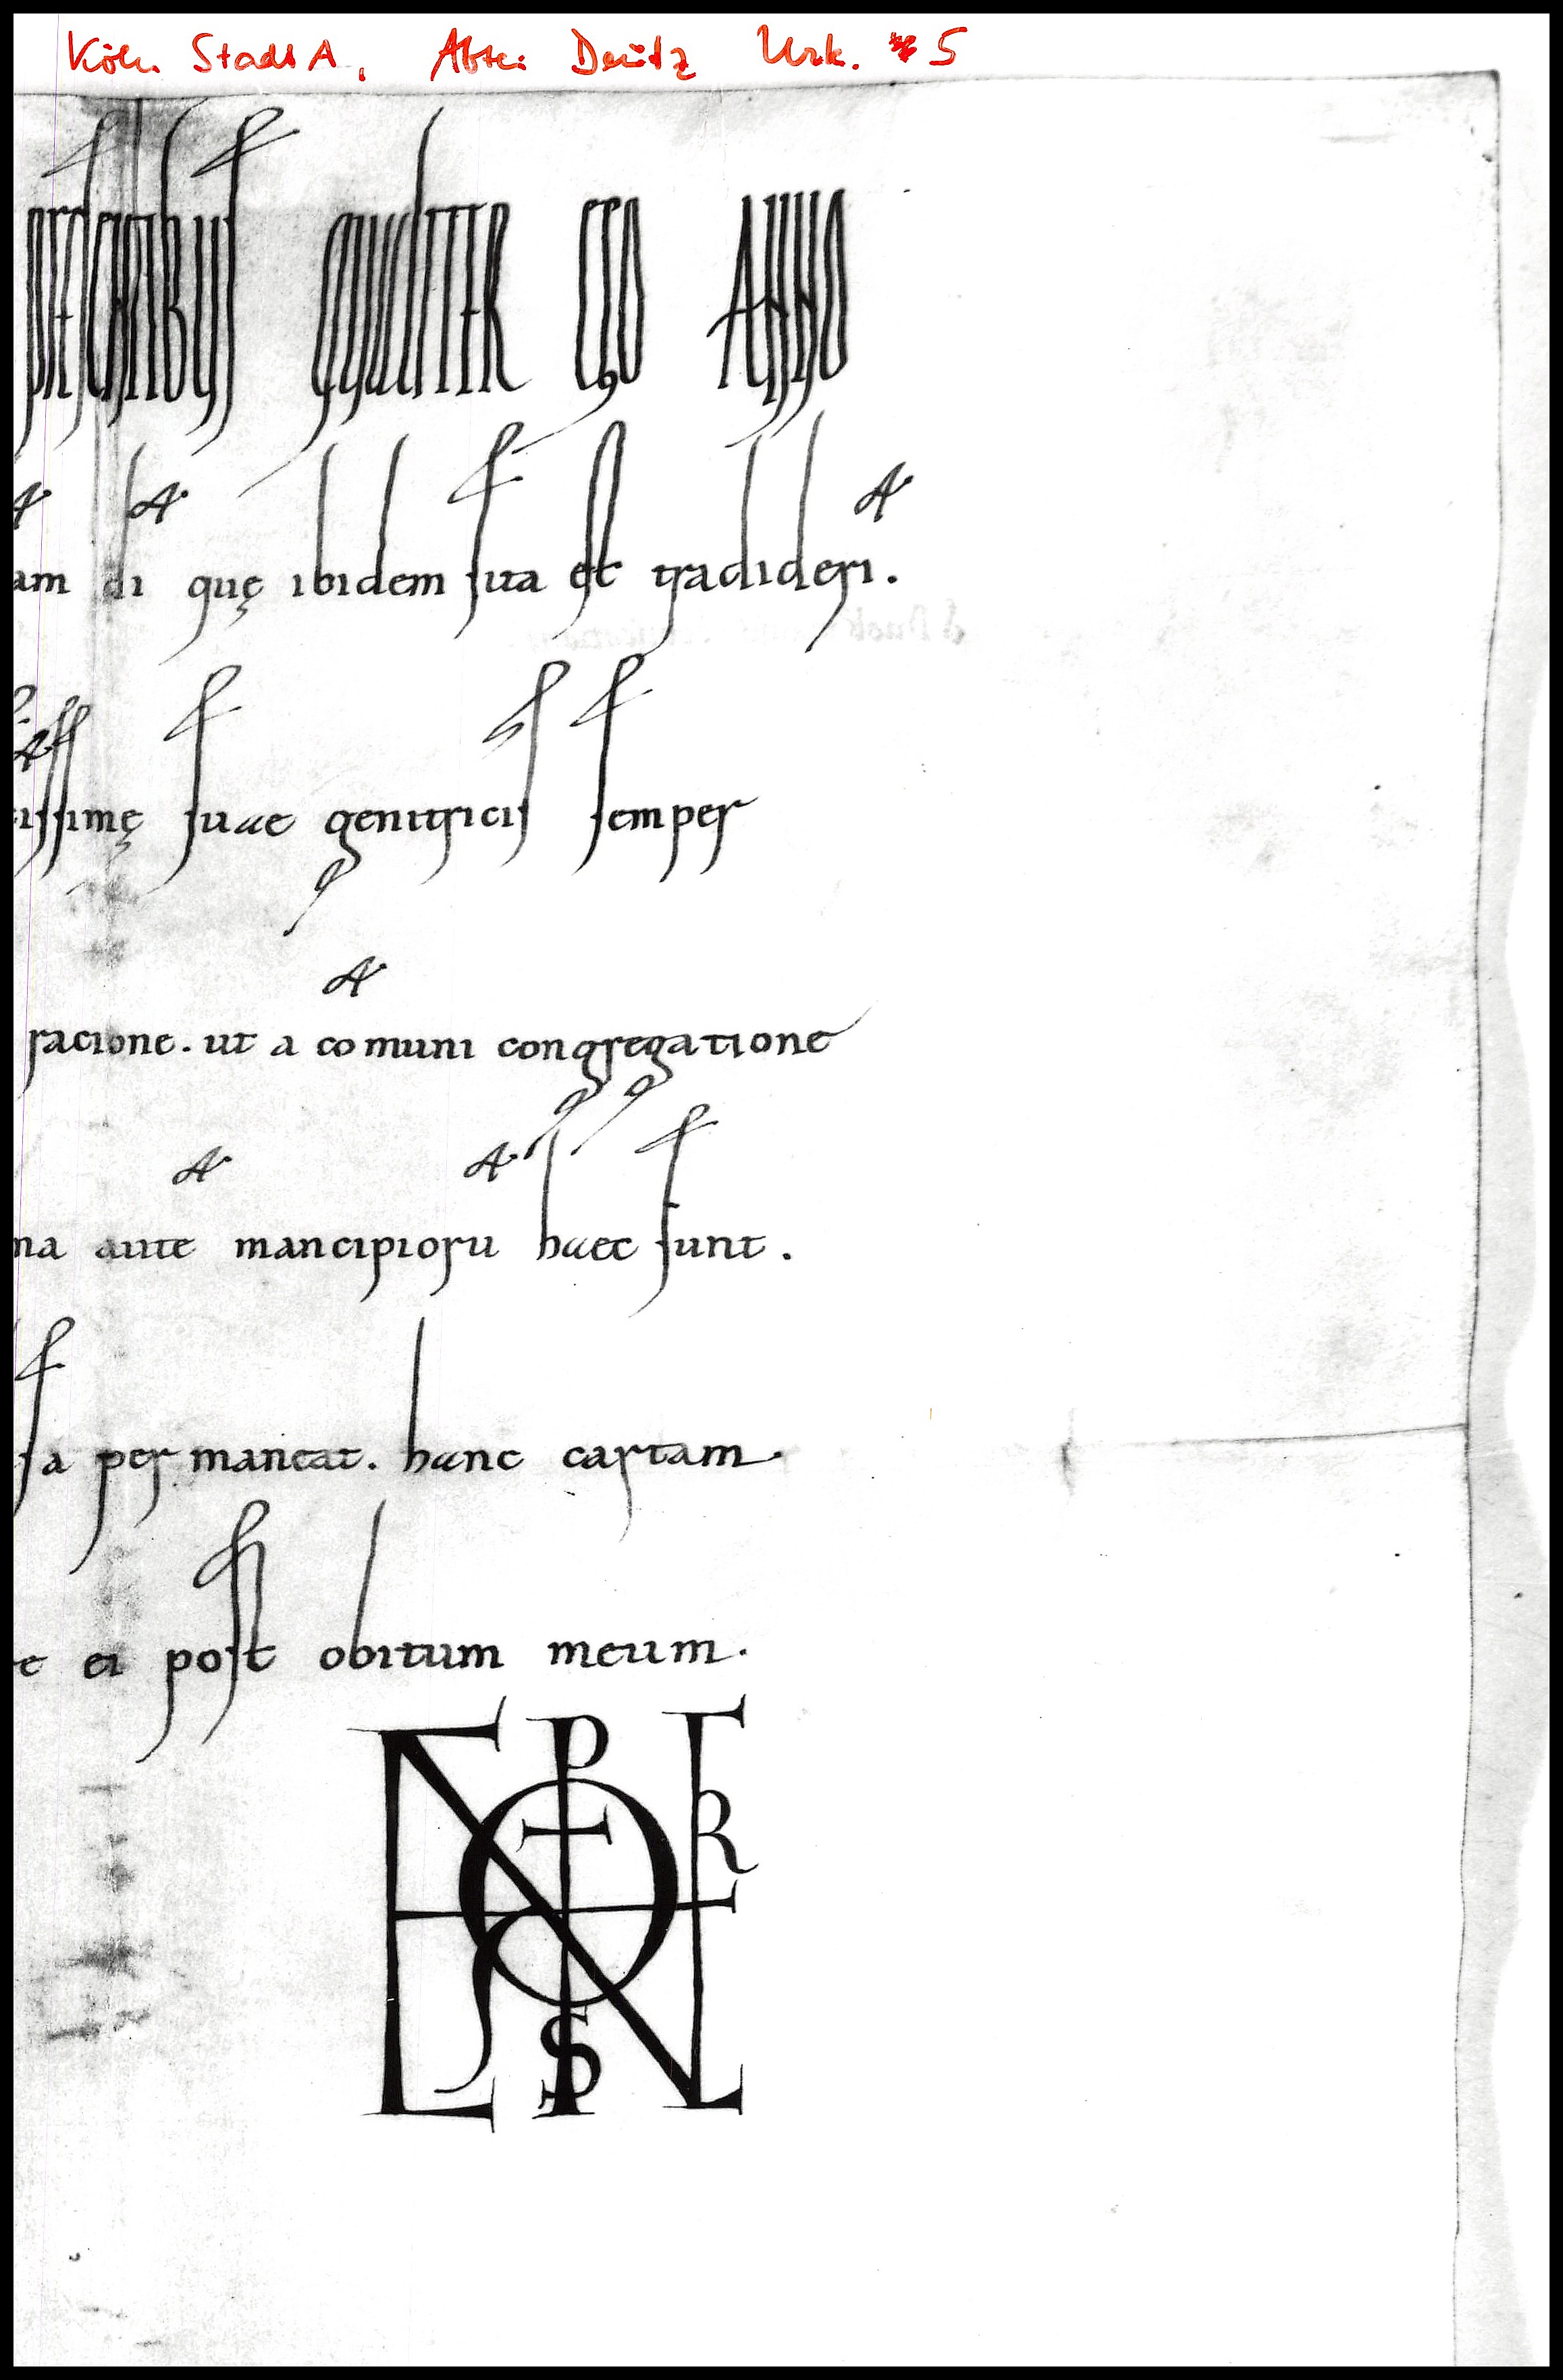 Köln StadtA, Abtei Deutz Urk. 5
presentibus qualiter ego Anno
am di quę ibidem sita est tradideri.
issimę suae genitricis semper
racione. ut a comuni congregatione
na aute mancipioru haec sunt.
sa permaneat. hanc cartam.
e ei post obitum meum.